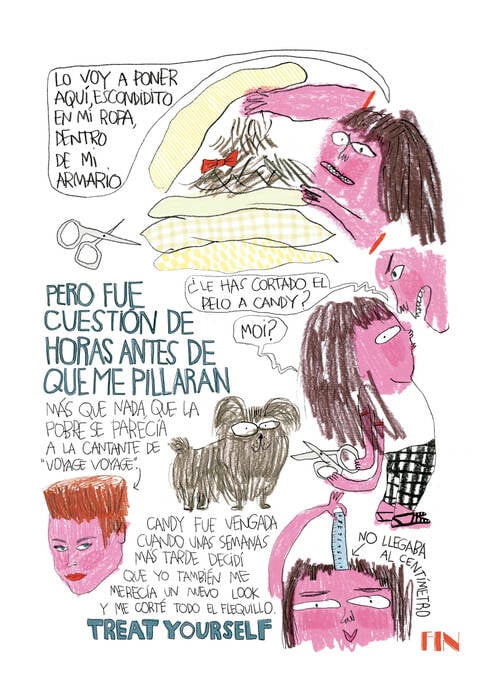 LO VOY A PONER
AQUÍ, ESCONDIDITO
EN MI ROPA,
DENTRO
DE MI
ARMARIO
¿LE HAS CORTADO EL
PELO A CANDY?
MOI?
PERO FUE
CUESTIÓN DE
HORAS ANTES DE
QUE ME PILLARAN
MÁS QUE NADA QUE LA
POBRE SE PARECÍA
A LA CANTANTE DE
"VOYAGE VOYAGE".
CANDY FUE VENGADA
CUANDO UNAS SEMANAS
MÁS TARDE DECIDÍ
QUE YO TAMBIÉN ME
MERECÍA UN NUEVO LOOK
Y ME CORTÉ TODO EL FLEQUILLO.
TREAT YOURSELF
NO LLEGABA
AL CENTÍMETRO
FIN